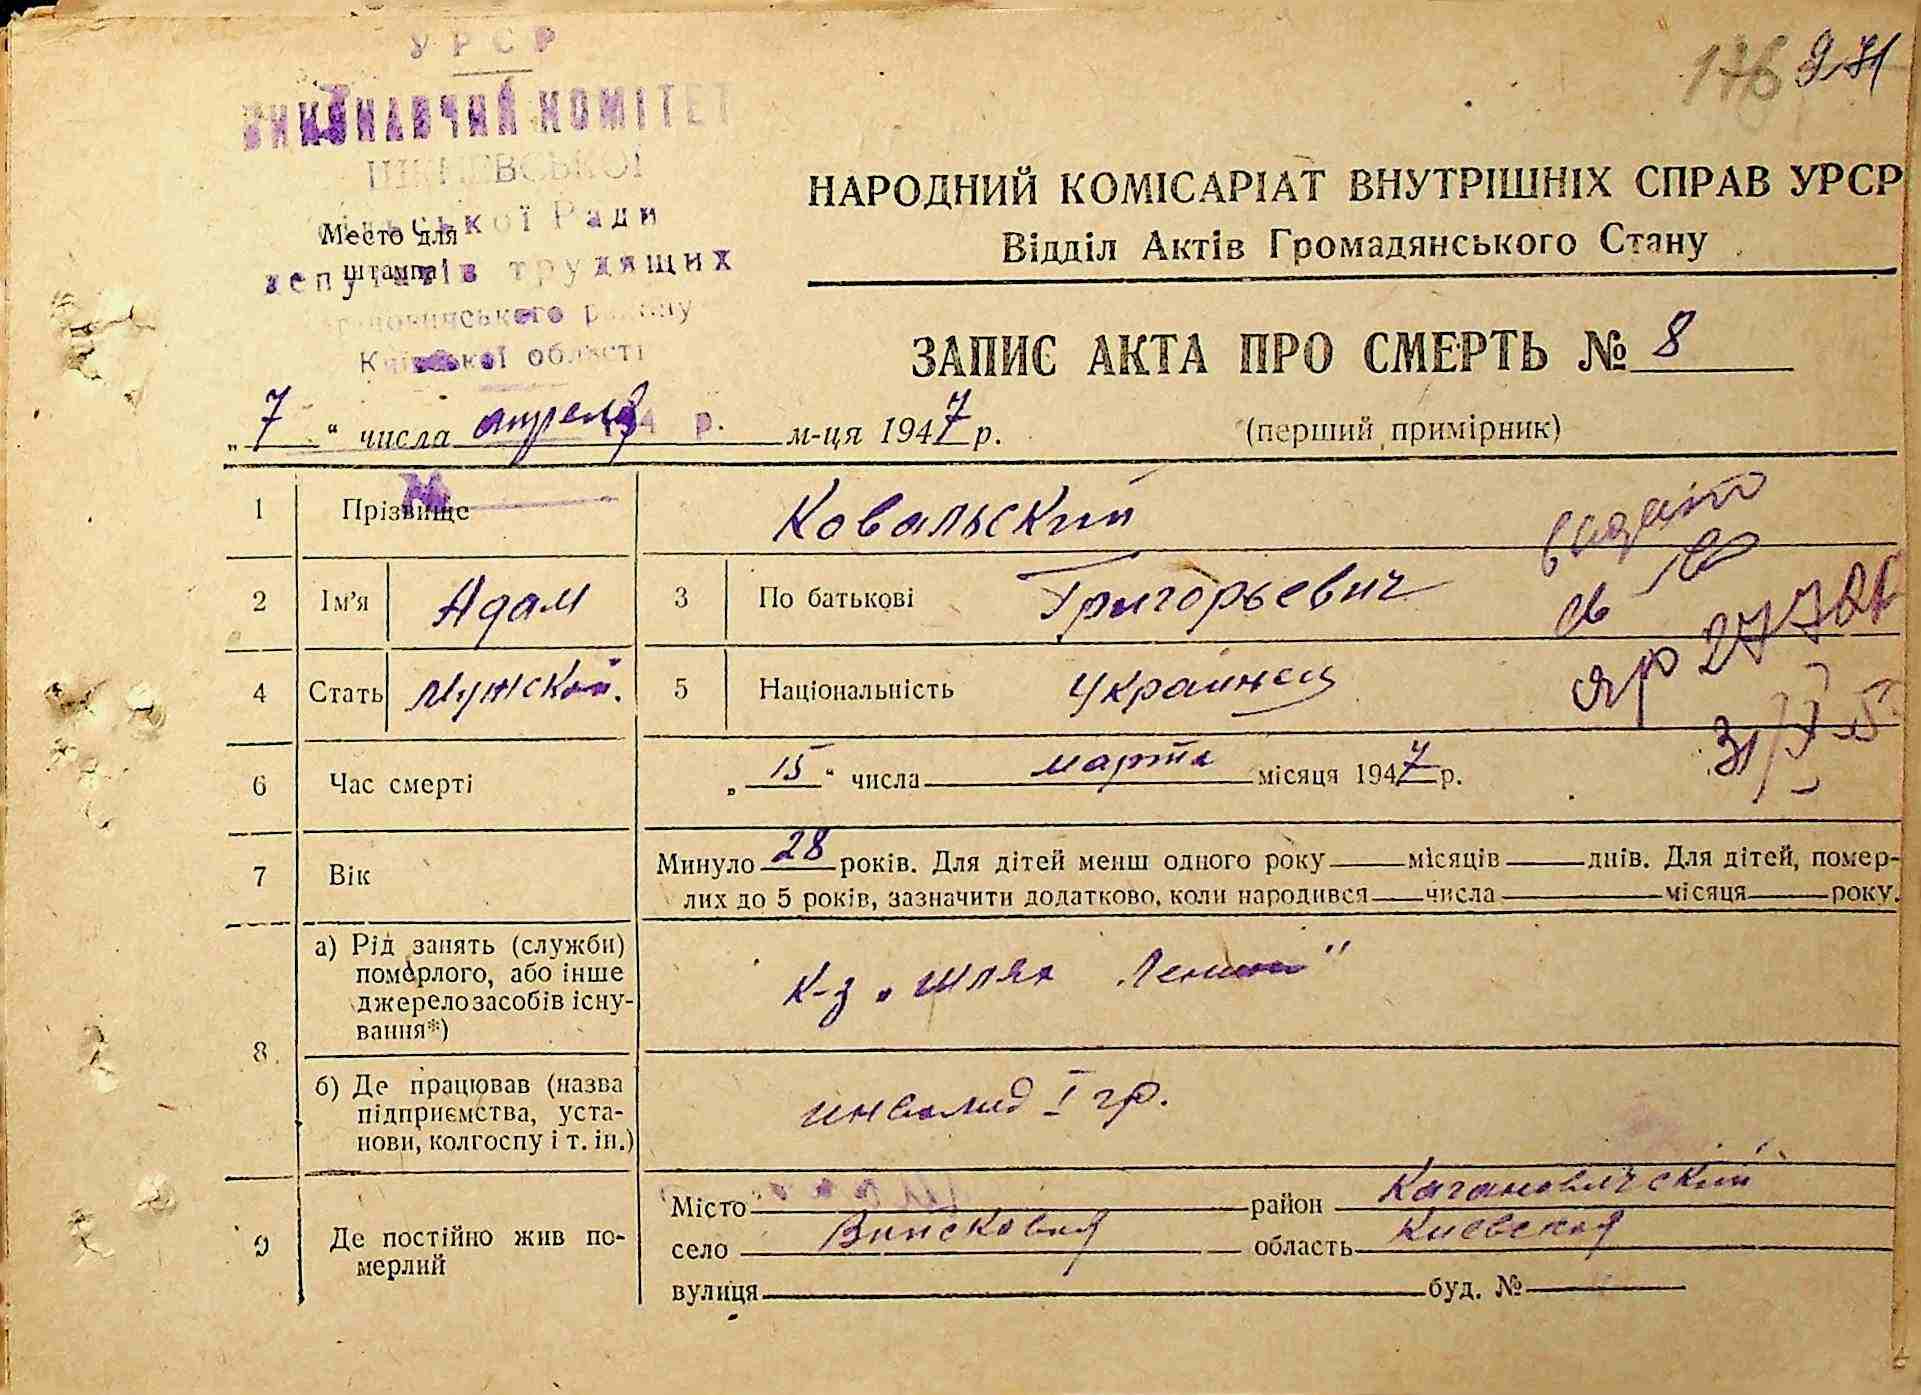 УРСР
176 971
ВИКОНАВЧИЙ КОМІТЕТ
сільської Ради
Место для
штампа
депутатів трудящих
Кагановичського району
Київської області
194 р.
НАРОДНИЙ КОМІСАРІАТ ВНУТРІШНІХ СПРАВ УРСР
Відділ Актів Громадянського Стану
ЗАПИС АКТА ПРО СМЕРТЬ № 8
„ 7 “ числа апреля м-ця 1947 р. (перший примірник)
№
1 Прізвище Ковальский
2 Ім’я Адам 3 По батькові Григорьевич
4 Стать Мужской. 5 Національність Украинец
6 Час смерті „ 15 “ числа марта місяця 1947 р.
7 Вік Минуло 28 років. Для дітей менш одного року місяців днів. Для дітей, помер-
лих до 5 років, зазначити додатково, коли народився числа місяця року.
8 а) Рід занять (служби)
померлого, або інше
джерело засобів існу-
вання*)
К-з „Шлях Ленина“
б) Де працював (назва
підприємства, уста-
нови, колгоспу і т. ін.)
инвалид I гр.
9 Де постійно жив по-
мерлий
Місто район Кагановичский
село область Киевская
вулиця буд. №